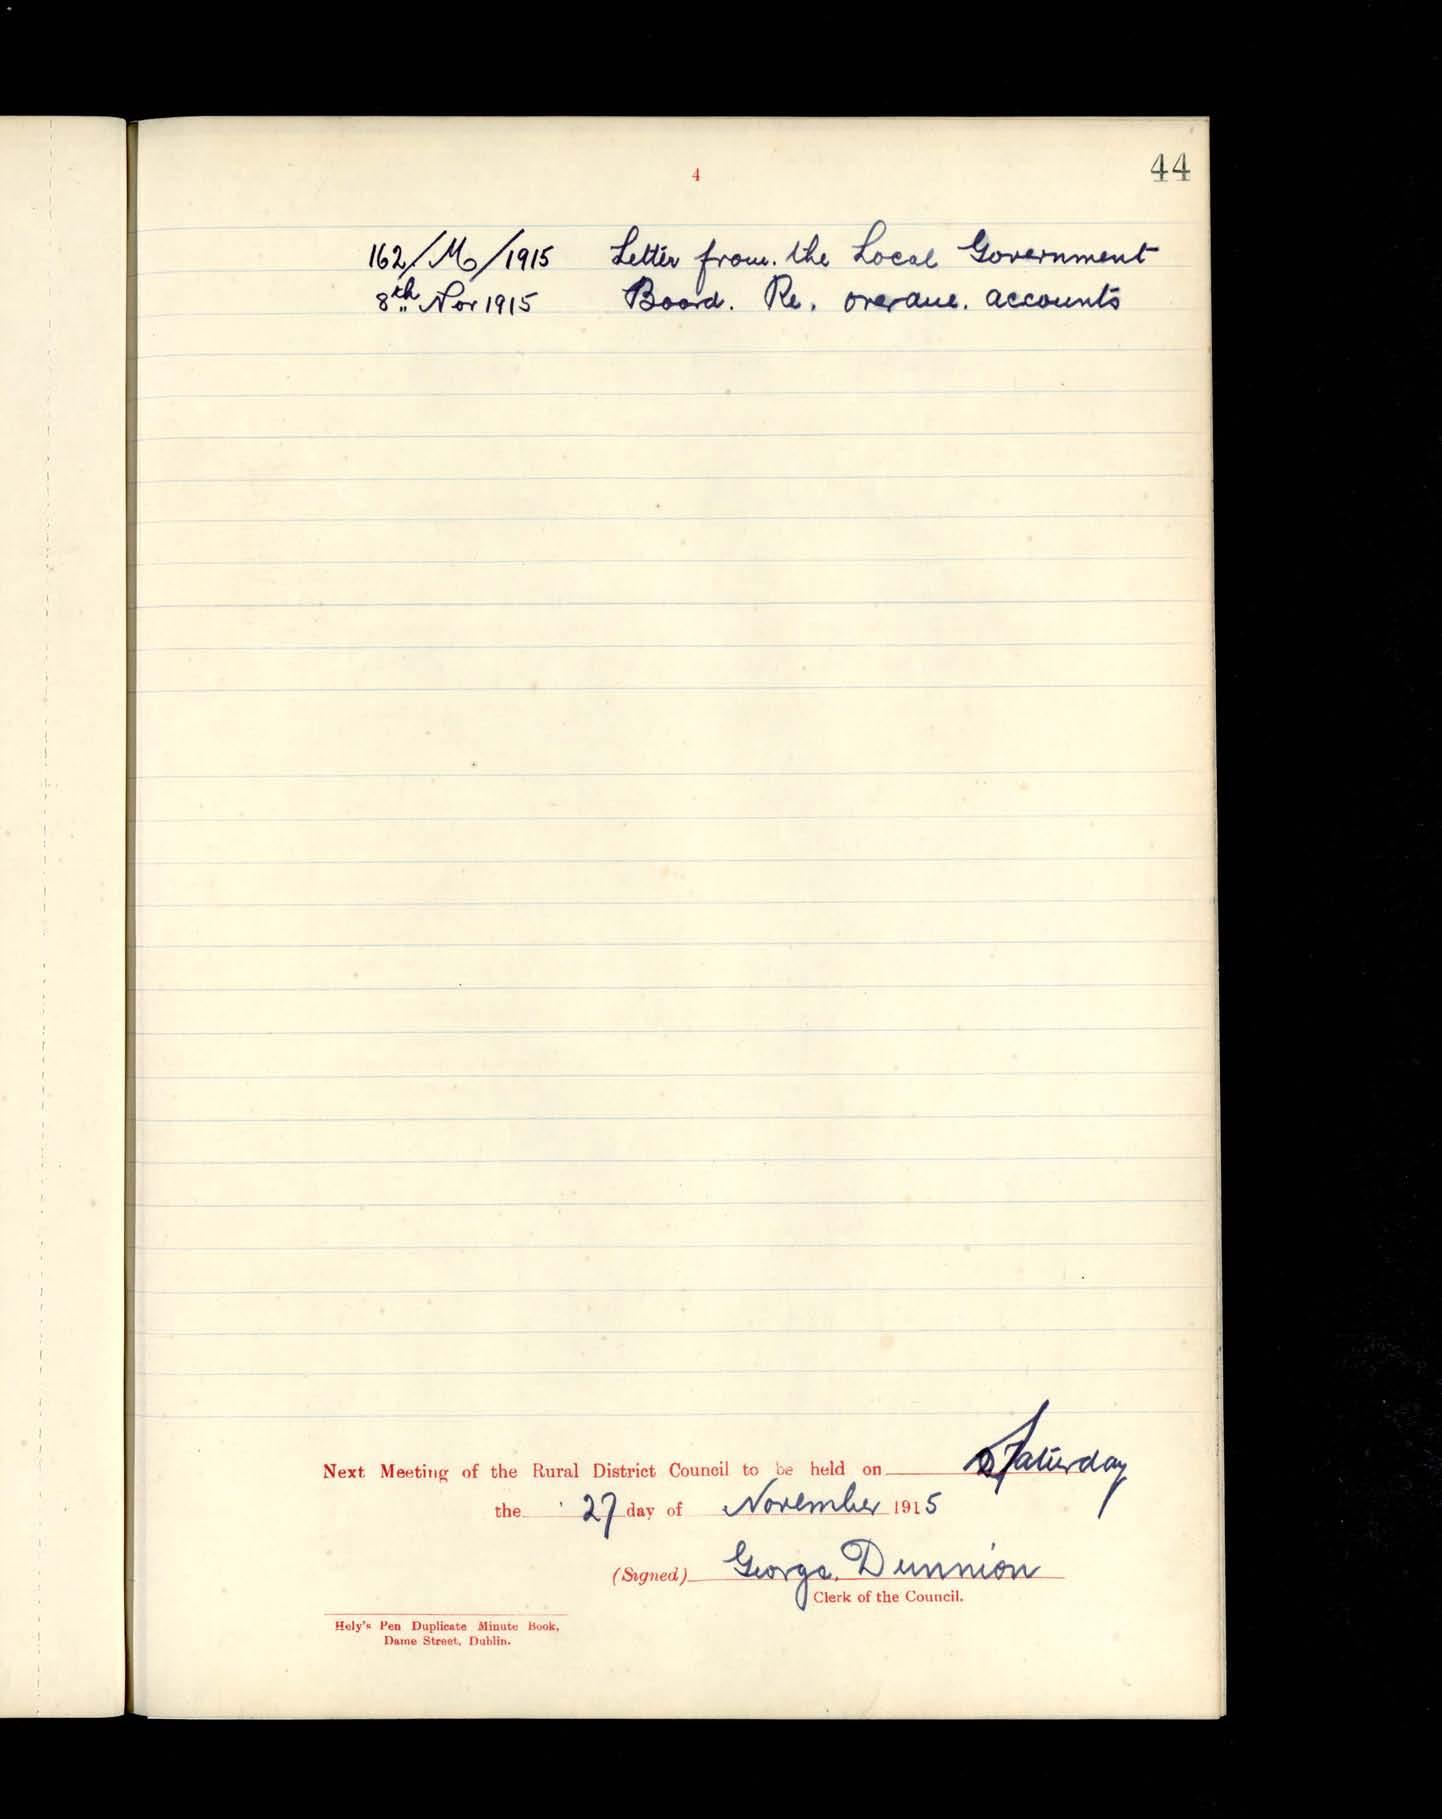 4
44
162/M/1915 Letter from. the Local Government
8th Nov 1915 Board. Re. overdue. accounts
Next Meeting of the Rural District Council to be held on Saturday
the 27 day of November 1915
(Signed) George. Dunnion
Clerk of the Council.
Hely's Pen Duplicate Minute Book,
Dame Street, Dublin.